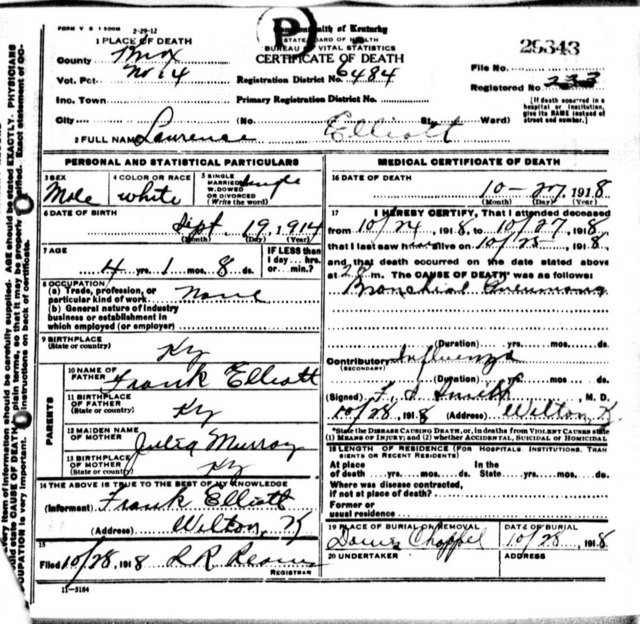 FORM V S 1 500M 2-29-12
P
Commonwealth of Kentucky
STATE BOARD OF HEALTH
BUREAU OF VITAL STATISTICS
CERTIFICATE OF DEATH
1 PLACE OF DEATH
County Knox
Vot. Pct. No 14
Inc. Town
City (No. St. Ward)
Registration District No. 6484
Primary Registration District No.
File No. 29343
Registered No. 233
[If death occurred in a hospital or institution, give its NAME instead of street and number.]
2 FULL NAME Lawrence Elliott
PERSONAL AND STATISTICAL PARTICULARS
3 SEX Male
4 COLOR OR RACE white
5 SINGLE MARRIED WIDOWED OR DIVORCED (Write the word) single
6 DATE OF BIRTH
Sept. 19, 1914
(Month) (Day) (Year)
7 AGE
4 yrs. 1 mos. 8 ds.
IF LESS than 1 day.... hrs. or....min.?
8 OCCUPATION
(a) Trade, profession, or particular kind of work None
(b) General nature of industry
business or establishment in
which employed (or employer)
9 BIRTHPLACE
(State or country) Ky
PARENTS
10 NAME OF FATHER Frank Elliott
11 BIRTHPLACE OF FATHER (State or country) Ky
12 MAIDEN NAME OF MOTHER Julia Murray
13 BIRTHPLACE OF MOTHER (State or country) Ky
14 THE ABOVE IS TRUE TO THE BEST OF MY KNOWLEDGE
(Informant) Frank Elliott
(Address) Wilton, K
15
Filed 10/28, 1918
REGISTRAR
11-3184
MEDICAL CERTIFICATE OF DEATH
16 DATE OF DEATH
10-27, 1918
(Month) (Day) (Year)
17 I HEREBY CERTIFY, That I attended deceased
from 10/24, 1918, to 10/27, 1918,
that I last saw him alive on 10/25, 1918,
and that death occurred on the date stated above
at m. The CAUSE OF DEATH* was as follows:
Bronchial Pneumonia
(Duration) yrs. mos. ds.
Contributory Influenza
(SECONDARY)
(Duration) yrs. mos. ds.
(Signed) Smith, M. D.
10/28, 1918 (Address) Wilton K
*State the DISEASE CAUSING DEATH, or, in deaths from VIOLENT CAUSES state
(1) MEANS OF INJURY; and (2) whether ACCIDENTAL, SUICIDAL or HOMICIDAL
18 LENGTH OF RESIDENCE (FOR HOSPITALS, INSTITUTIONS, TRANSIENTS OR RECENT RESIDENTS)
At place of death yrs. mos. ds. In the State yrs. mos. ds.
Where was disease contracted,
if not at place of death?
Former or
usual residence
19 PLACE OF BURIAL OR REMOVAL Chappel
DATE OF BURIAL 10/28, 1918
20 UNDERTAKER ADDRESS